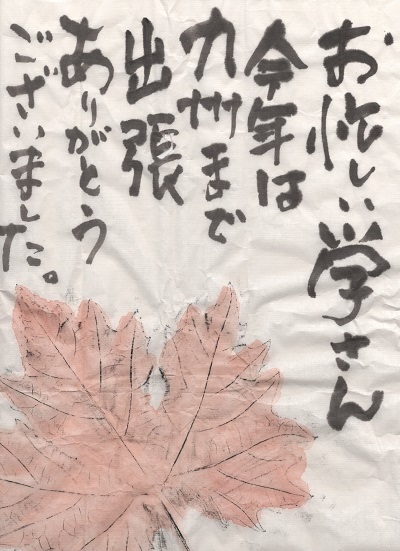 お忙しい学さん
今年は
九州まで
出張
ありがとう
ございました。